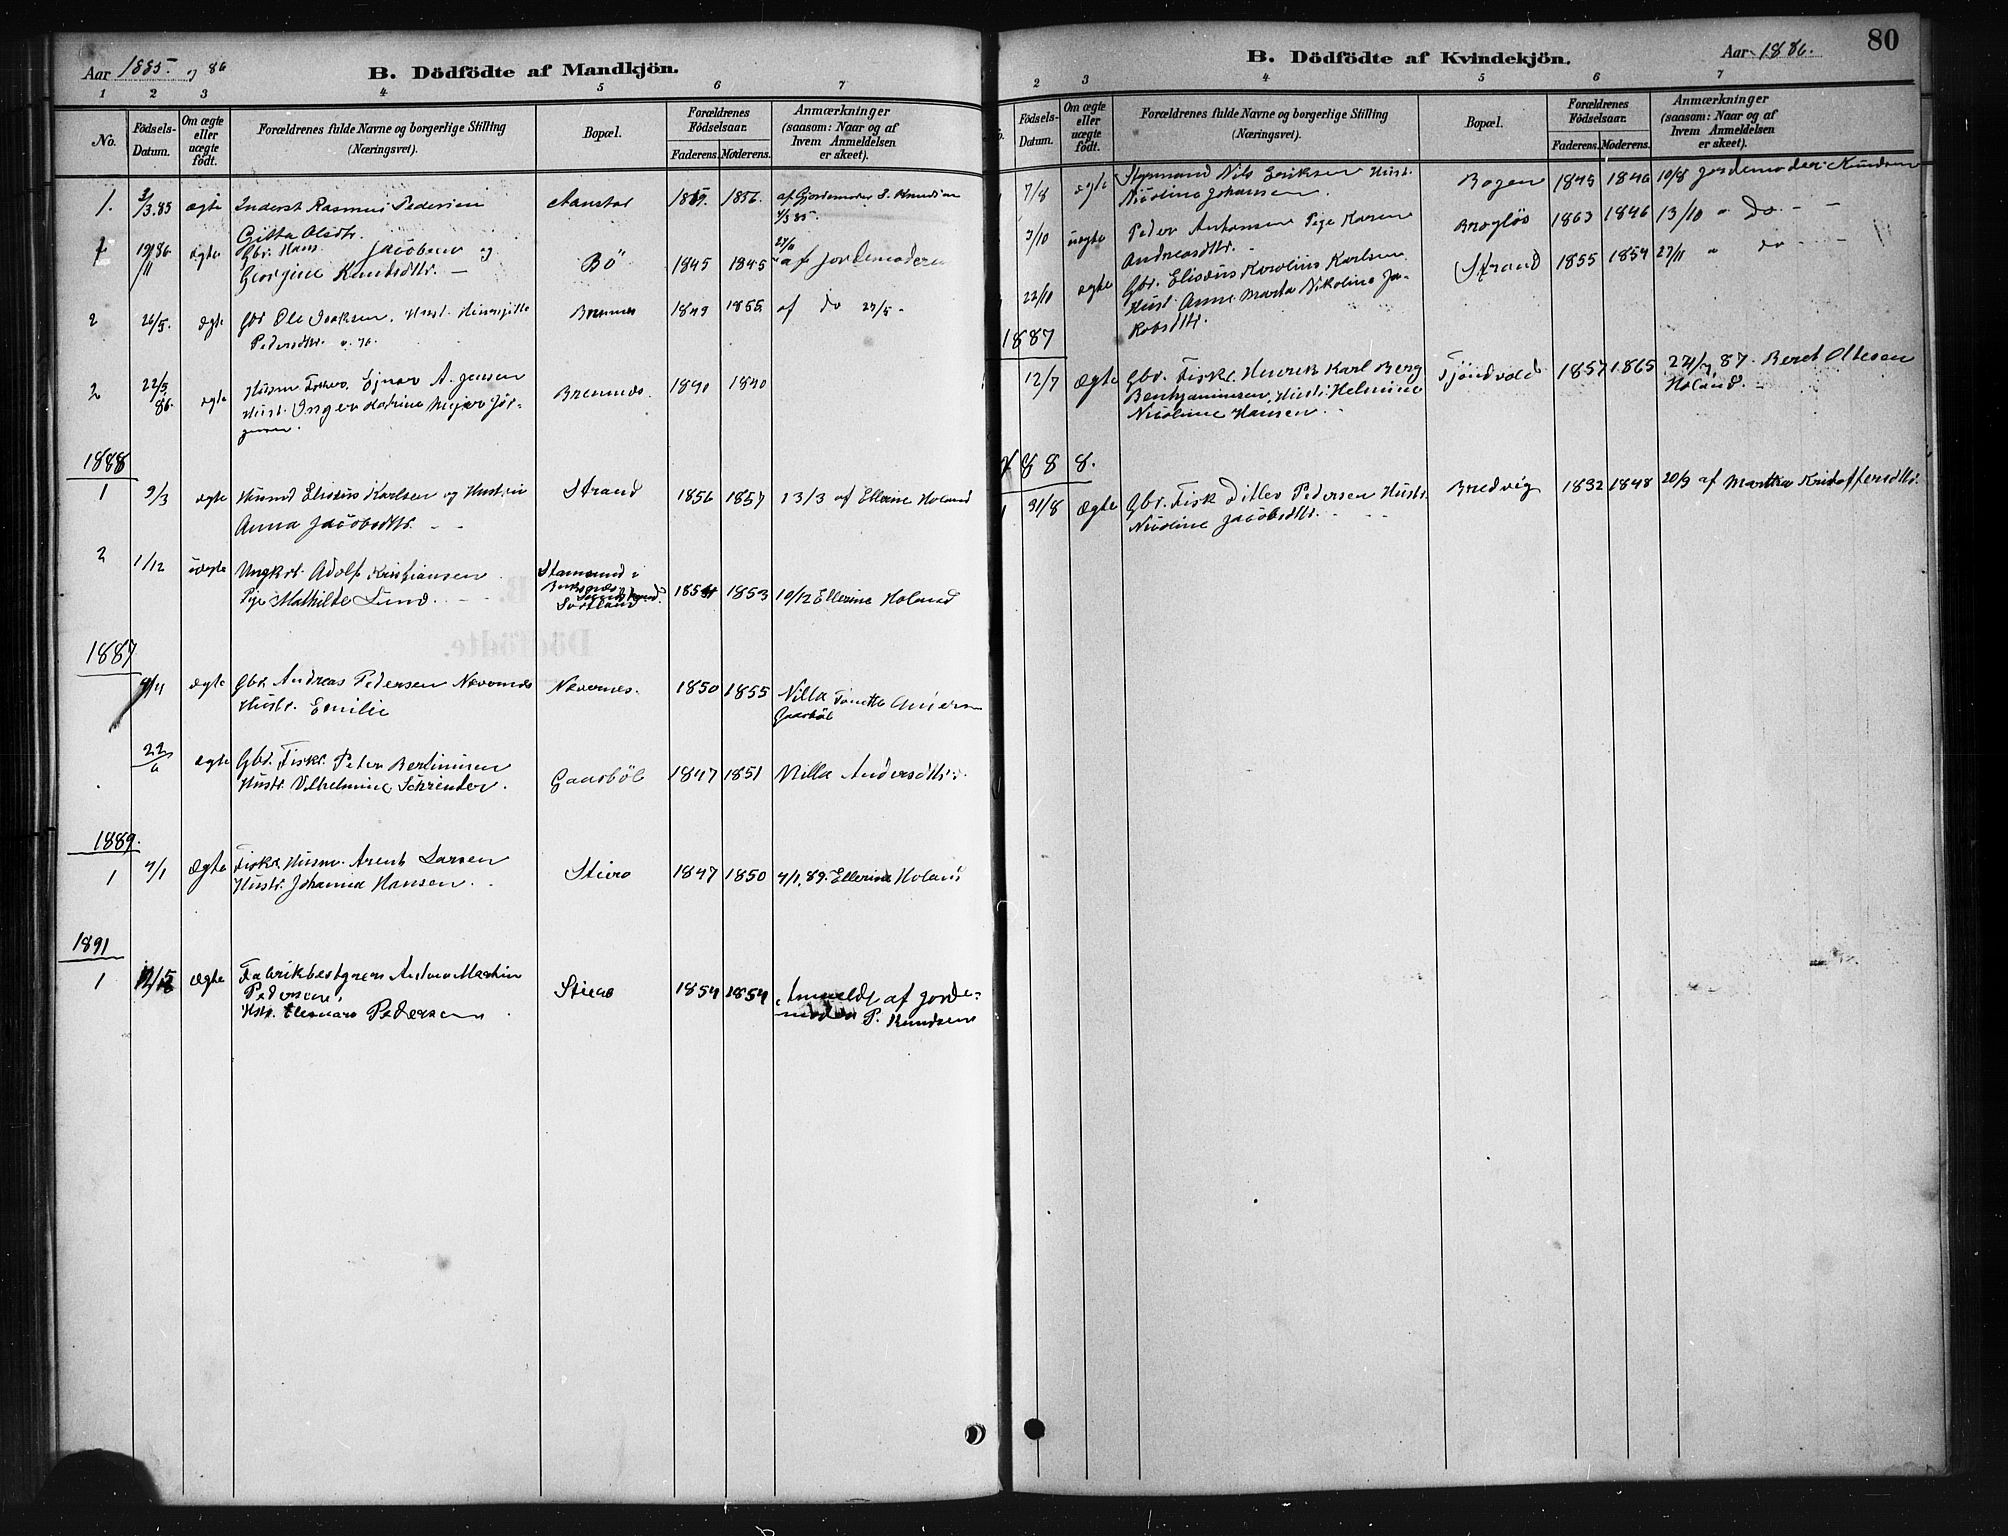 Aar 1885. og 86
B. Dödfödte af Mandkjön.
1 2 3 4 5 6 7
No.
Födsels-Datum.
Om ægte eller uægte födt.
Forældrenes fulde Navne og borgerlige Stilling
(Næringsvei).
Bopæl.
Forældrenes Födselsaar.
Faderens. Moderens.
Anmærkninger
(saasom: Naar og af
hvem Anmeldelsen
er skeet).
1. 3/3.85 ægte Inderst Rasmus Pedersen 1856. af Gjordemoder S. Knudsen
Gitta Olsdtr.
Gbr. Hans Jacobsen og
Georgine Knudsdtr. Bö 1845 1845 af Jordemoderen
2 26/5. ægte Gbr Ole Isaksen. Hust.
Pedersdtr. Brennes 1849 1855 af do 27/5
2 22/5 86. ægte Husm Ejnar A. Jensen
Hust. Inger Katrine Mejer Jör-
gensen. Brennes. 1840 1840
1888
1 9/3 ægte Husmd Elisæus Karlsen og Hustru Strand 1856 1857 13/3 af Ellerine Holand
Anna Jacobsdtr.
2 1/12 uægte Ungkrl. Adolf Kristiansen
Pige Mathilde Lund. Stamsund i
Buksnæs,
Sortland. 1853 10/12 Ellerine Holand
1887
ægte Gbr. Andreas Pedersen Nævernes Nævernes. 1850 1855 Nilla
Hustr. Emilie Gaasböl
22/6 ægte Gbr. Fisker Peter Bertinusen
Hustr. Vilhelmine Schrender. Gaasböl 1847 1851 Nilla Andersdtr.
1889.
1 4/1 Ægte Fisker Husm. Arent Larsen
Hustr. Johanna Hansen. Stiero 1847 1850 4/1.89. Ellerine Holand
1891
1 ægte Fabrikbestyrer Anton Martin
Pedersen,
Hstr. Eleonora Pedersen Stiero 1854 1854 Anmeldt af Jorde-
moder P. Knudsen
80
B. Dödfödte af Kvindekjön.
Aar 1886.
2 3 4 5 6 7
Födsels-Datum.
Om ægte eller uægte födt.
Forældrenes fulde Navne og borgerlige Stilling
(Næringsvei).
Bopæl.
Forældrenes Födselsaar.
Faderens. Moderens.
Anmærkninger
(saasom: Naar og af
hvem Anmeldelsen
er skeet).
7/8 ægte Styrmand Nils Eriksen Hust.
Nicoline Johansen. Bogen 1845 1846 10/8 Jordemoder Knudsen
3/10 uægte Peder Antonsen Pige Karen
Andreasdtr. Brogløs 1863 1846 13/10 " Do
22/11 ægte Gbr. Elisæus Karolius Karlsen
Hust. Anne Marta Nikoline Ja-
kobsdtr. Strand 1855 1854 27/11 " do
1887
12/7 Ægte Gbr. Fisker Henrik Karl Berg
Benhjaminsen, Hustr. Helmine
Nicoline Hansen. Tjöndvold 1857 1865 87. Beret Oltesen
Holand.
1888.
31/8 Ægte Gbr. Fisk Ditlev Pedersen Hustr.
Nicoline Jacobsdtr. Bredvig 1832 1848 20/9 af Martha Kristoffersdtr.